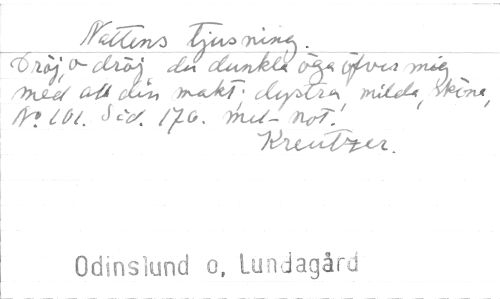 Nattens tjusning.
Dröj, o dröj du dunkla öga öfver mig
med all din makt; dystra, milda, sköna,
No. 101. Sid. 170. met not.
Kreutzer.
Odinslund o. Lundagård